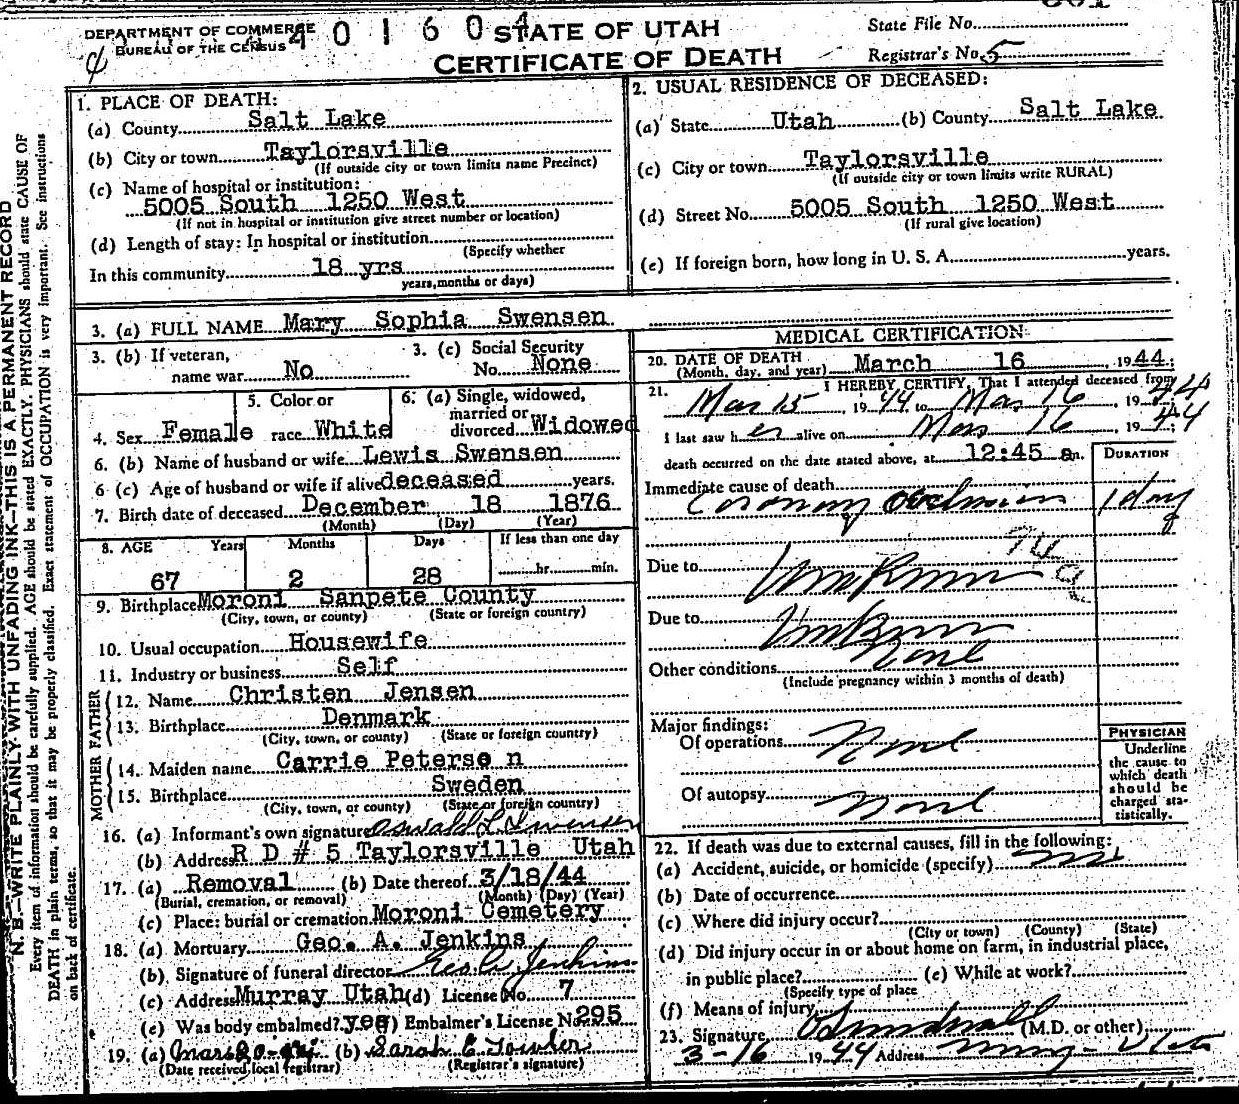 DEPARTMENT OF COMMERCE
BUREAU OF THE CENSUS
4 0 1 6 0 4
STATE OF UTAH
CERTIFICATE OF DEATH
State File No.
Registrar's No. 5
1. PLACE OF DEATH:
(a) County Salt Lake
(b) City or town Taylorsville
(If outside city or town limits name Precinct)
(c) Name of hospital or institution:
5005 South 1250 West
(If not in hospital or institution give street number or location)
(d) Length of stay: In hospital or institution
(Specify whether
In this community 18 yrs
years, months or days)
2. USUAL RESIDENCE OF DECEASED:
(a) State Utah (b) County Salt Lake
(c) City or town Taylorsville
(If outside city or town limits write RURAL)
(d) Street No. 5005 South 1250 West
(If rural give location)
(e) If foreign born, how long in U. S. A. years.
3. (a) FULL NAME Mary Sophia Swensen
3. (b) If veteran, name war No
3. (c) Social Security No. None
4. Sex Female
5. Color or race White
6. (a) Single, widowed, married or divorced Widowed
6. (b) Name of husband or wife Lewis Swensen
6 (c) Age of husband or wife if alive deceased years.
7. Birth date of deceased December 18 1876
(Month) (Day) (Year)
8. AGE Years Months Days If less than one day
67 2 28 hr. min.
9. Birthplace Moroni Sanpete County
(City, town, or county) (State or foreign country)
10. Usual occupation Housewife
11. Industry or business Self
FATHER
12. Name Christen Jensen
13. Birthplace Denmark
(City, town, or county) (State or foreign country)
MOTHER
14. Maiden name Carrie Peterse n
15. Birthplace Sweden
(City, town, or county) (State or foreign country)
16. (a) Informant's own signature Oswald L. Swensen
(b) Address R D # 5 Taylorsville Utah
17. (a) Removal (b) Date thereof 3/18/44
(Burial, cremation, or removal) (Month) (Day) (Year)
(c) Place: burial or cremation Moroni Cemetery
18. (a) Mortuary Geo. A. Jenkins
(b) Signature of funeral director Geo A Jenkins
(c) Address Murray Utah (d) License No. 7
(e) Was body embalmed? yes (f) Embalmer's License No. 295
19. (a) (b) Sarah E. Towler
(Date received local registrar) (Registrar's signature)
MEDICAL CERTIFICATION
20. DATE OF DEATH March 16, 1944;
(Month, day, and year)
21. I HEREBY CERTIFY, That I attended deceased from
Mar 15, 1944 to Mar 16, 1944
I last saw her alive on Mar 16, 1944;
death occurred on the date stated above, at 12:45 a m.
DURATION
Immediate cause of death
Coronary Occlusion 1 day
Due to Unknown
94a
Due to Unknown
Other conditions None
(Include pregnancy within 3 months of death)
Major findings:
Of operations None
Of autopsy None
PHYSICIAN
Underline the cause to which death should be charged statistically.
22. If death was due to external causes, fill in the following:
(a) Accident, suicide, or homicide (specify)
(b) Date of occurrence
(c) Where did injury occur?
(City or town) (County) (State)
(d) Did injury occur in or about home on farm, in industrial place,
in public place? (e) While at work?
(Specify type of place
(f) Means of injury
23. Signature (M.D. or other)
3-16 1944 Address
N. B.—WRITE PLAINLY WITH UNFADING INK—THIS IS A PERMANENT RECORD
Every item of information should be carefully supplied. AGE should be stated EXACTLY. PHYSICIANS should state CAUSE OF
DEATH in plain terms, so that it may be properly classified. Exact statement of OCCUPATION is very important. See instructions
on back of certificate.